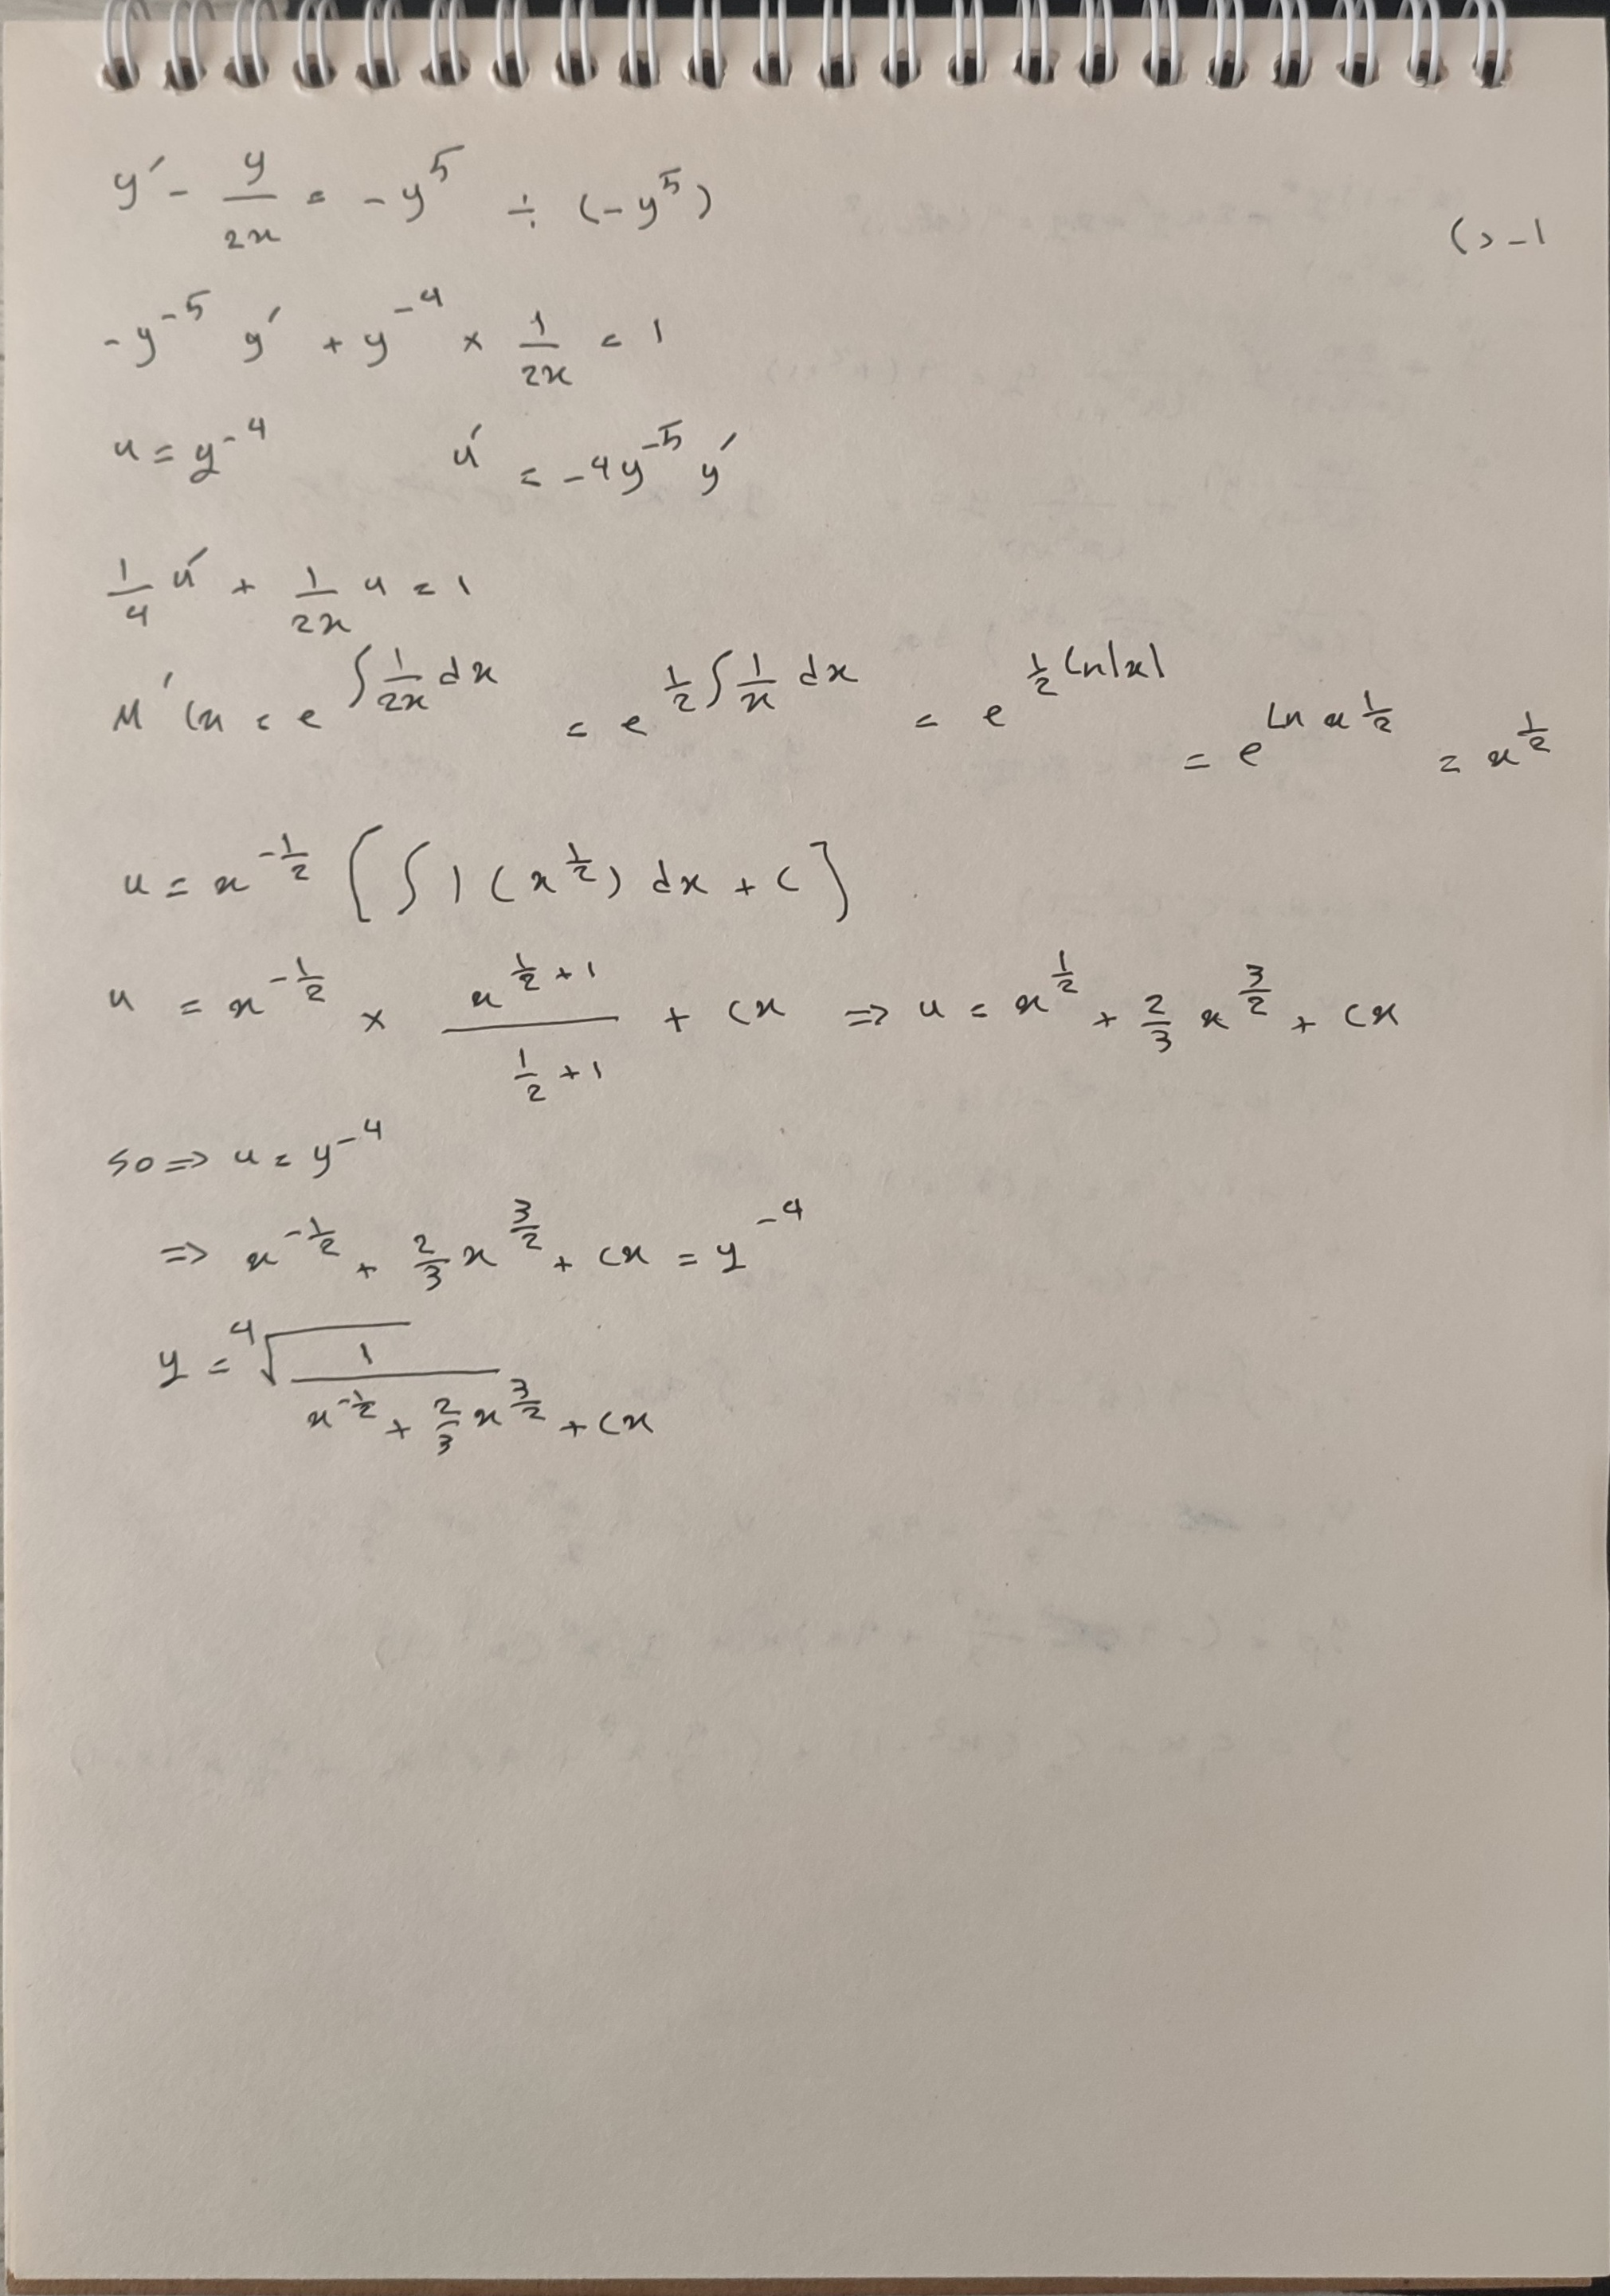 y′ - y/2x = -y^5 ÷ (-y^5)
-y^-5 y′ + y^-4 × 1/2x = 1
u = y^-4 u′ = -4y^-5 y′
1/4 u′ + 1/2x u = 1
M′(x = e^∫ 1/2x dx = e^1/2 ∫ 1/x dx = e^1/2 Ln|x| = e^Ln x^1/2 = x^1/2
u = x^-1/2 [∫ 1 (x^1/2) dx + C]
u = x^-1/2 × x^(1/2+1) / (1/2+1) + Cx ⇒ u = x^1/2 + 2/3 x^3/2 + Cx
so ⇒ u = y^-4
⇒ x^-1/2 + 2/3 x^3/2 + Cx = y^-4
y = ⁴√ 1 / (x^-1/2 + 2/3 x^3/2 + Cx